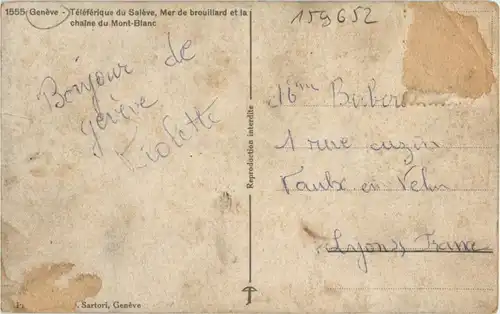 159652
1555 Genève - Téléférique du Salève, Mer de brouillard et la
chaîne du Mont-Blanc
Bonjour de
genève
Violette
Reproduction interdite
1 rue
Vaulx en Velin
Lyon France
Sartori, Genève